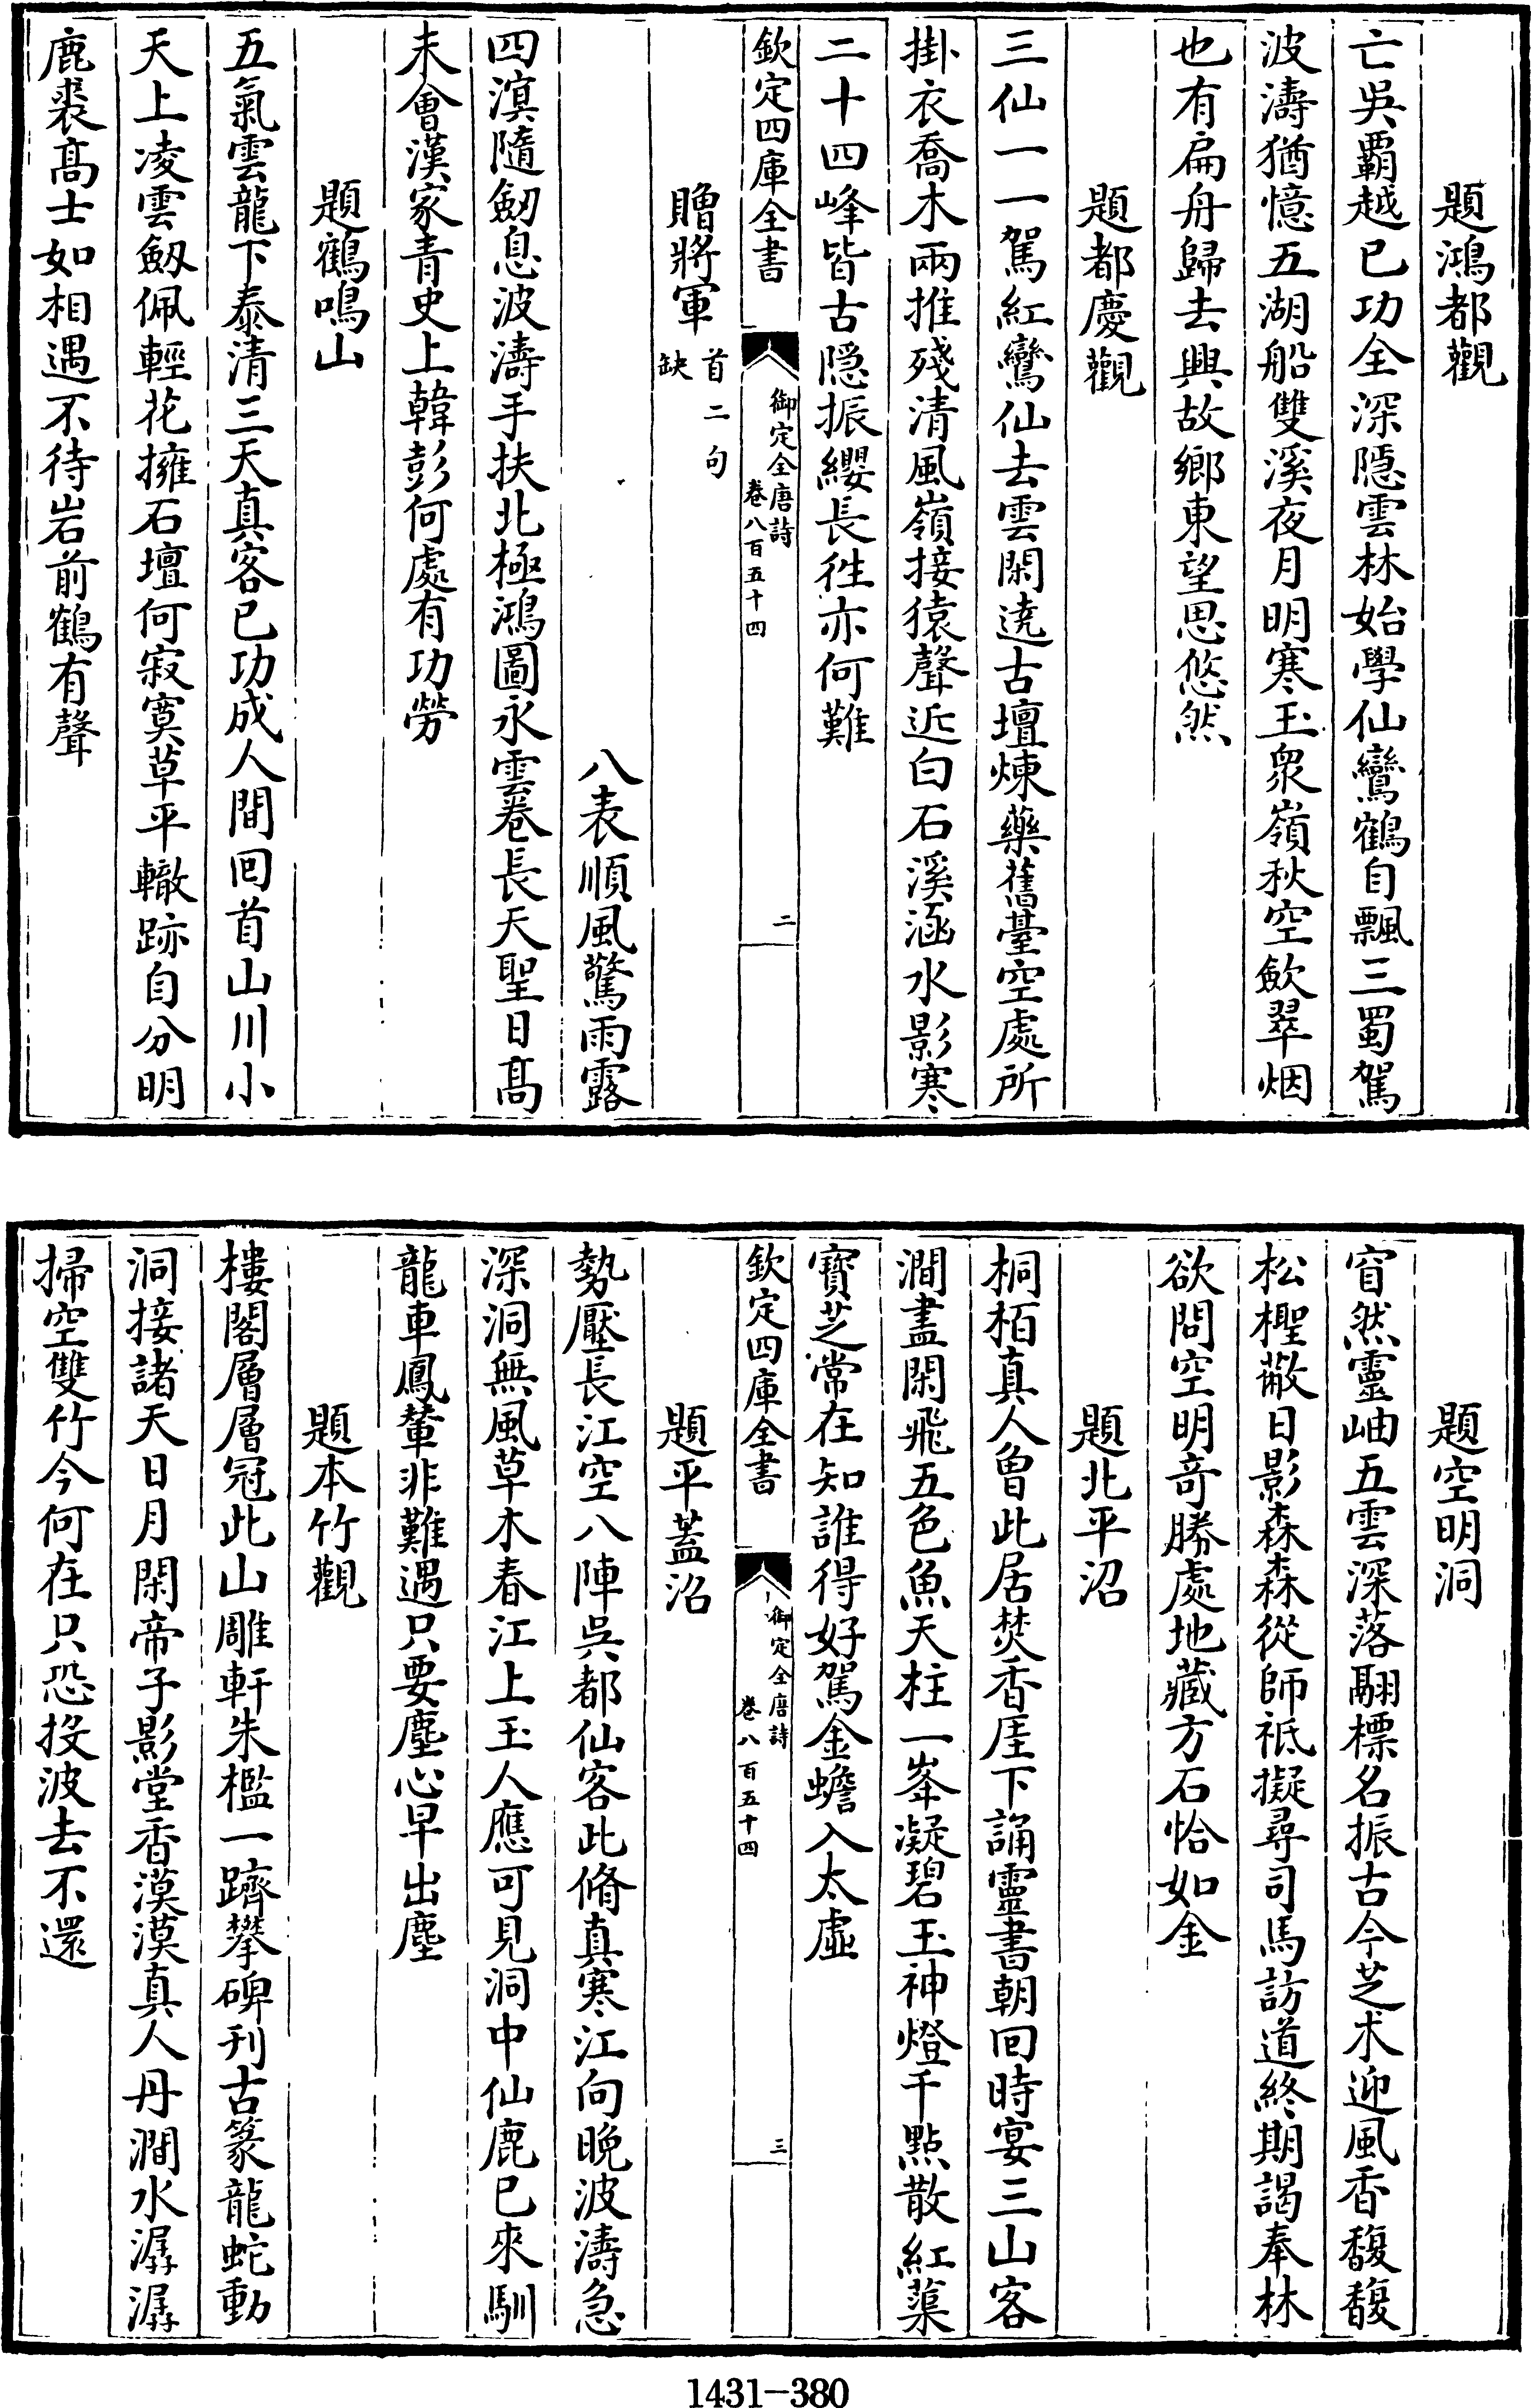 題鴻都觀
亡吳覇越已功全深隱雲林始學仙鸞鶴自飄三蜀駕
波濤猶憶五湖船雙溪夜月明寒玉衆嶺秋空歛翠烟
也有扁舟歸去興故鄉東望思悠然
題都慶觀
三仙一一駕紅鸞仙去雲閑遶古壇煉藥舊臺空處所
掛衣喬木兩推殘清風嶺接猿聲近白石溪涵水影寒
二十四峰皆古隠振纓長徃亦何難
欽定四庫全書
御定全唐詩
卷八百五十四
二
贈將軍首二句缺
八表順風驚雨露
四溟隨劒息波濤手扶北極鴻圖永雲卷長天聖日髙
未會漢家青史上韓彭何處有功勞
題鶴鳴山
五氣雲龍下泰清三天真客已功成人間回首山川小
天上凌雲劔佩輕花擁石壇何寂寞草平轍跡自分明
鹿裘髙士如相遇不待岩前鶴有聲
題空明洞
窅然靈岫五雲深落翮標名振古今芝术迎風香馥馥
松檉蔽日影森森從師祗擬尋司馬訪道終期謁奉林
欲問空明竒勝處地藏方石恰如金
題北平沼
桐栢真人曽此居焚香厓下誦靈書朝回時宴三山客
澗盡閑飛五色魚天柱一峯凝碧玉神燈千點散紅蕖
寶芝常在知誰得好駕金蟾入太虛
欽定四庫全書
御定全唐詩
卷八百五十四
三
題平蓋沼
勢壓長江空八陣吳都仙客此脩真寒江向晚波濤急
深洞無風草木春江上玉人應可見洞中仙鹿已來馴
龍車鳳輦非難遇只要塵心早出塵
題本竹觀
樓閣層層冠此山雕軒朱檻一躋攀碑刊古篆龍蛇動
洞接諸天日月閑帝子影堂香漠漠真人丹澗水潺潺
掃空雙竹今何在只恐投波去不還
1431-380